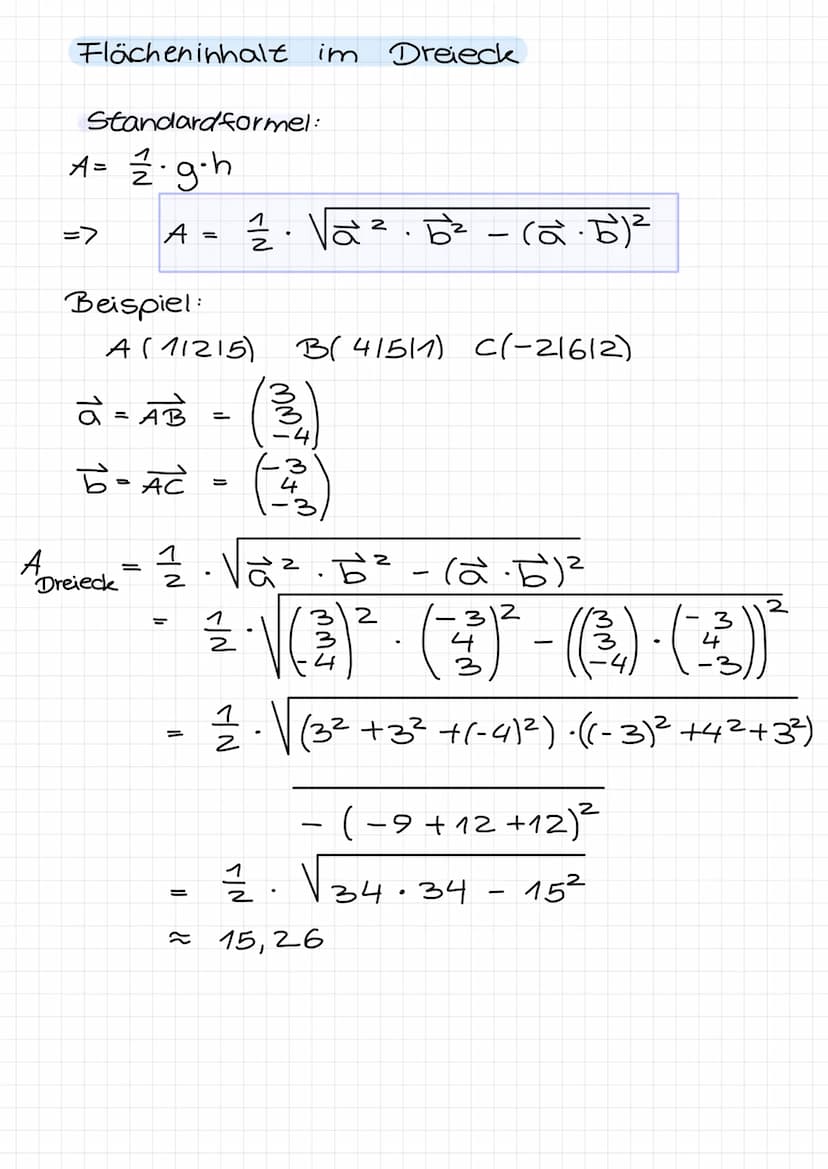 Flächeninhalt im Dreieck
Standardformel:
A = 1/2 · g · h
=> A = 1/2 · √(a⃗² · b⃗² - (a⃗ · b⃗)²)
Beispiel:
A(1|2|5) B(4|5|1) C(-2|6|2)
a⃗ = AB⃗ = (3 3 -4)
b⃗ = AC⃗ = (-3 4 -3)
A Dreieck = 1/2 · √(a⃗² · b⃗² - (a⃗ · b⃗)²)
= 1/2 · √((3 3 -4)² · (-3 4 3)² - ((3 3 -4) · (-3 4 -3))²)
= 1/2 · √((3² + 3² + (-4)²) · ((-3)² + 4² + 3²)
- (-9 + 12 + 12)²
= 1/2 · √(34 · 34 - 15²)
≈ 15,26